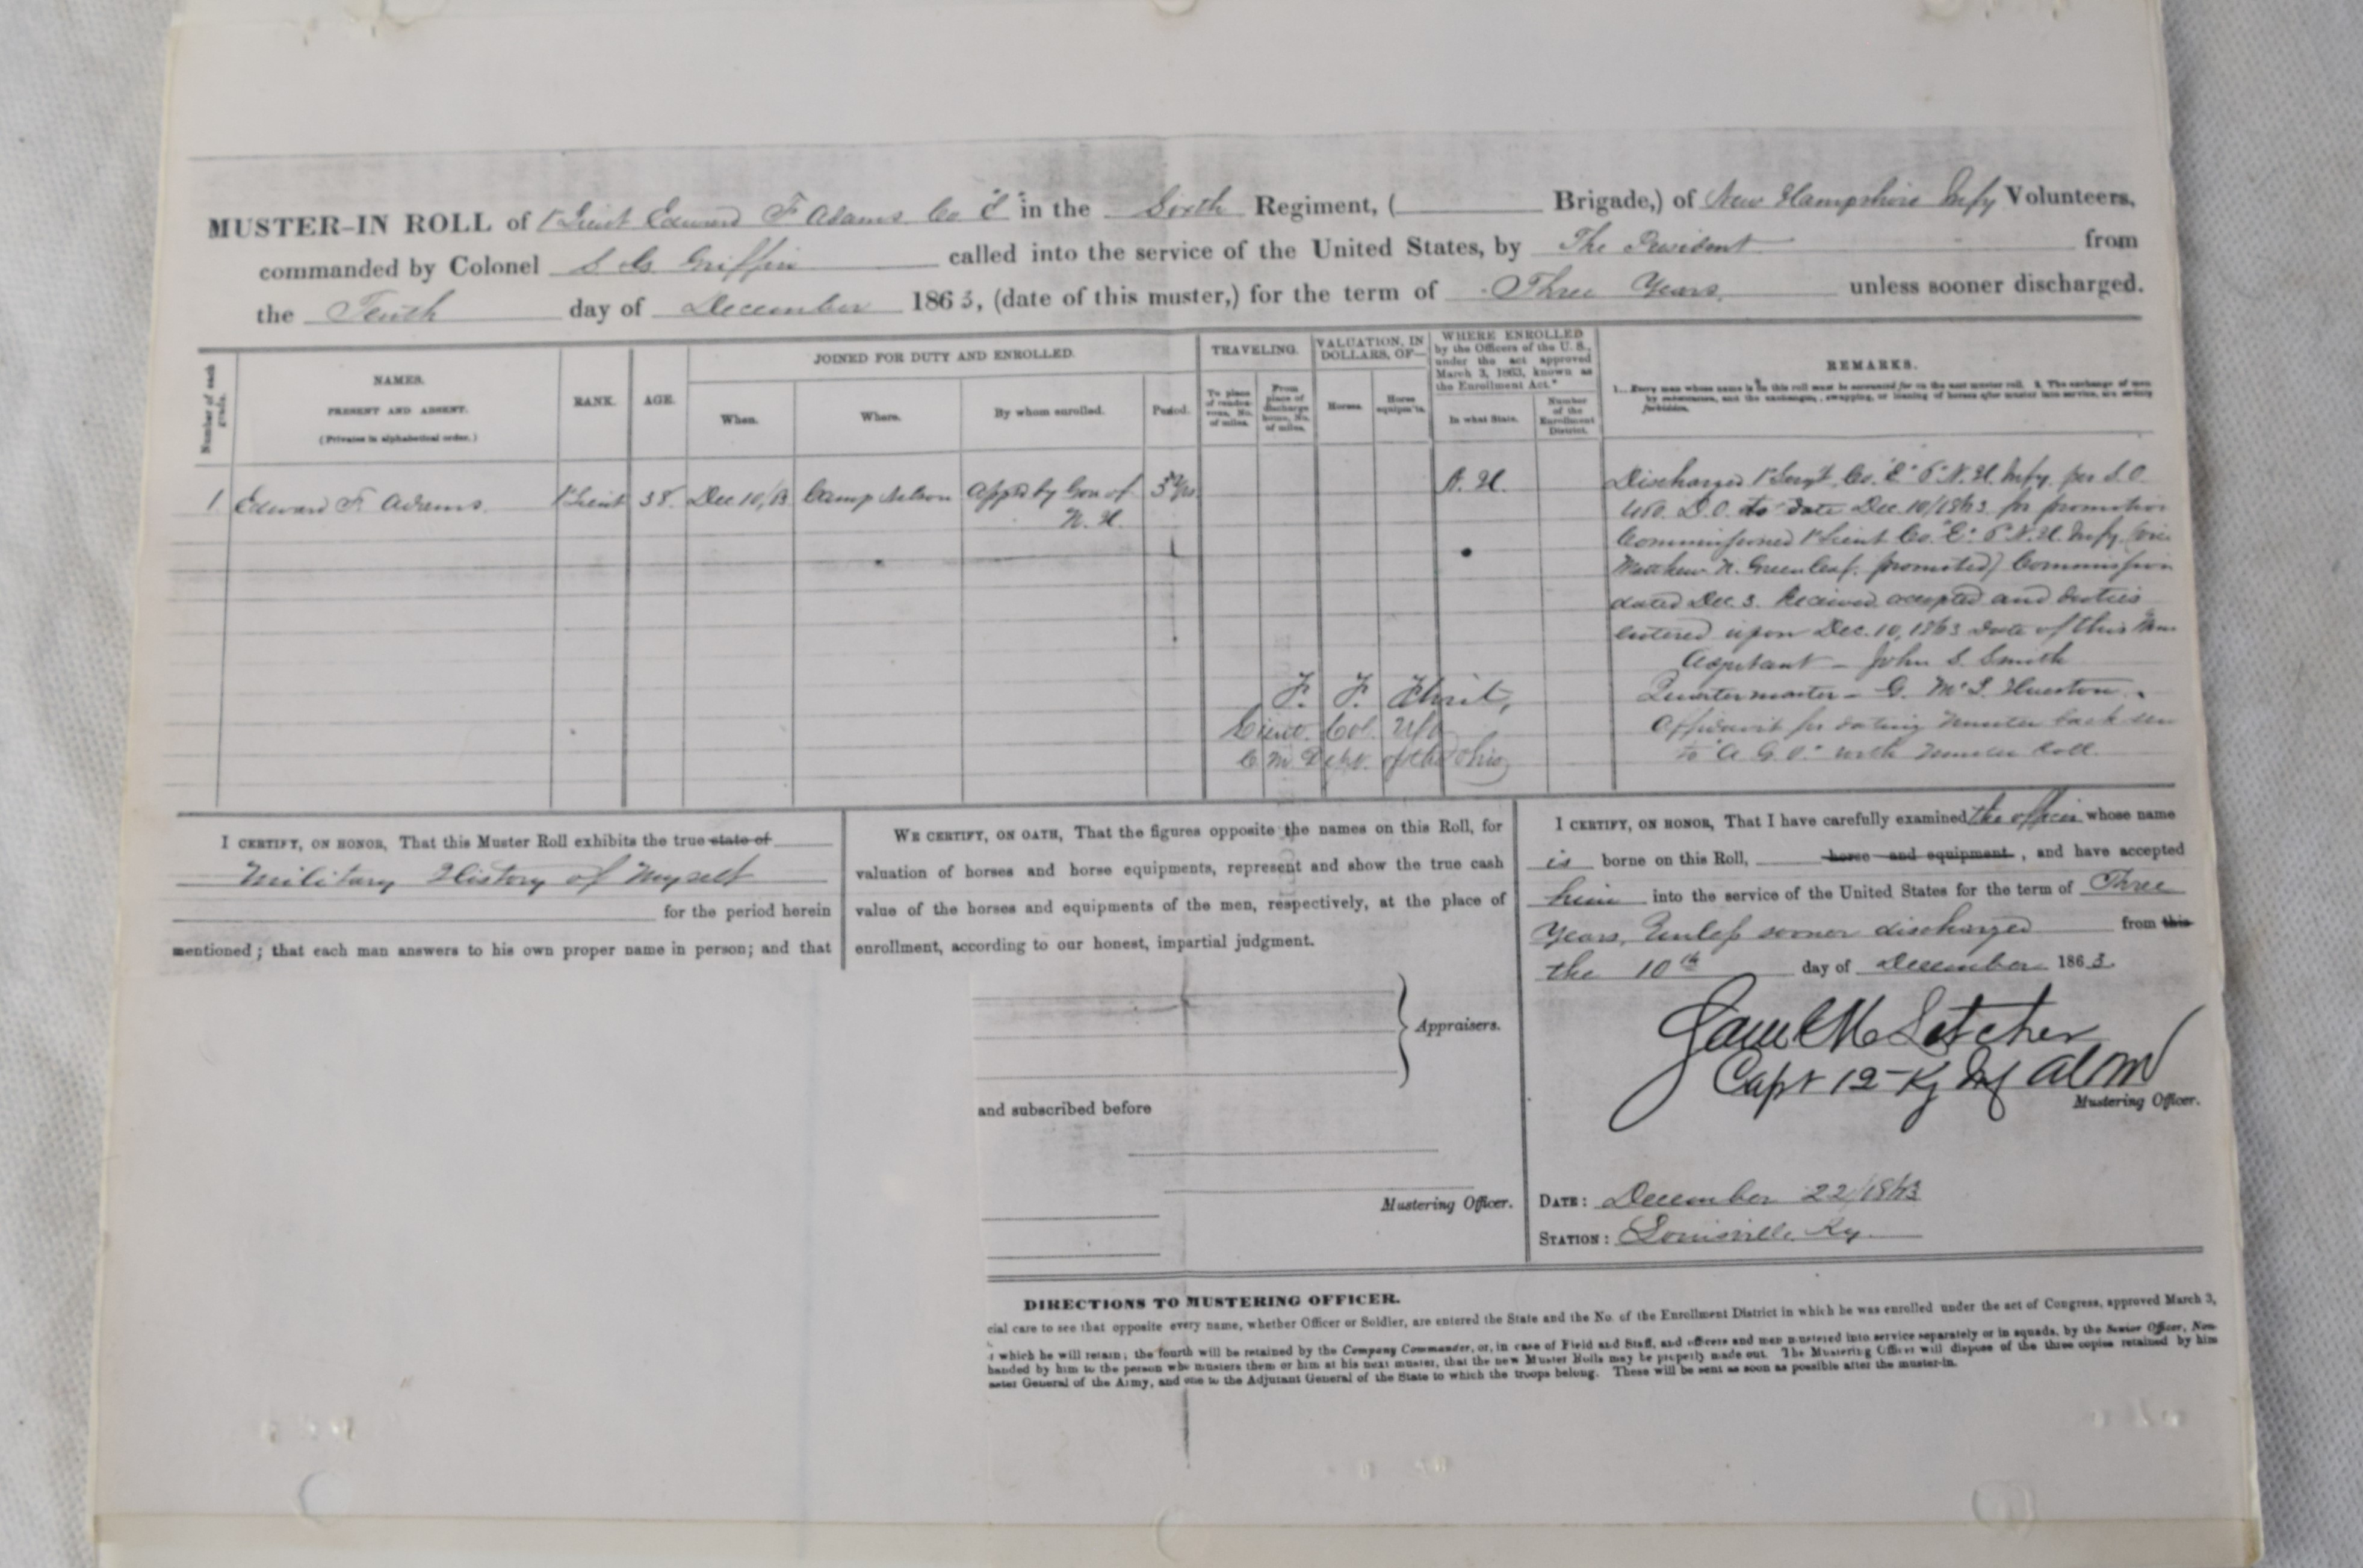 MUSTER-IN ROLL of 1st Lieut Edward F Adams Co "E" in the Sixth Regiment, ( Brigade,) of New Hampshire Infy Volunteers,
commanded by Colonel S G Griffin called into the service of the United States, by The President from
the Tenth day of December 1863, (date of this muster,) for the term of Three Years unless sooner discharged.
Number of each grade.
NAMES.
PRESENT AND ABSENT.
(Privates in alphabetical order.)
RANK.
AGE.
JOINED FOR DUTY AND ENROLLED.
When.
Where.
By whom enrolled.
Period.
TRAVELING.
To place of rendezvous, No. of miles.
From place of discharge home, No. of miles.
VALUATION, IN DOLLARS, OF—
Horses.
Horse equipm'ts.
WHERE ENROLLED
by the Officers of the U. S.,
under the act approved
March 3, 1863, known as
the Enrollment Act.*
In what State.
Number of the Enrollment District.
REMARKS.
1.. Every man whose name is on this roll must be accounted for on the next muster roll. 2. The exchange of men
by substitution, and the exchanges, swapping, or loaning of horses after muster into service, are strictly
forbidden.
1 Edward F. Adams. 1st Lieut 38. Dec 10/63 Camp Nelson Appt'd by Gov of N. H. 3 Yrs N. H.
Discharged 1st Sergt Co. "E" 6" N. H. Infy. per S. O.
D. O. to date Dec 10/1863 for promotion
Commissioned 1st Lieut Co. "E" 6" N. H. Infy (vice
Matthew N. Greenleaf. promoted) Commission
dated Dec. 3. Received accepted and duties
entered upon Dec. 10, 1863 date of this
Adjutant — John S. Smith
Quartermaster — G.
Affidavit for dating muster back
to "A G O." with Muster Roll.
F. F. Flint,
Lieut. Col. USA
C M Dept. of the Ohio
I CERTIFY, ON HONOR, That this Muster Roll exhibits the true state of
Military History of Myself
for the period herein
mentioned; that each man answers to his own proper name in person; and that
WE CERTIFY, ON OATH, That the figures opposite the names on this Roll, for
valuation of horses and horse equipments, represent and show the true cash
value of the horses and equipments of the men, respectively, at the place of
enrollment, according to our honest, impartial judgment.
Appraisers.
and subscribed before
Mustering Officer.
I CERTIFY, ON HONOR, That I have carefully examined the officer whose name
is borne on this Roll, horse and equipment, and have accepted
him into the service of the United States for the term of Three
Years, Unless sooner discharged from this
the 10th day of December 1863.
Saml M Letcher
Capt 12 Ky Inf ACM
Mustering Officer.
DATE: December 22/1863
STATION: Louisville Ky.
DIRECTIONS TO MUSTERING OFFICER.
cial care to see that opposite every name, whether Officer or Soldier, are entered the State and the No. of the Enrollment District in which he was enrolled under the act of Congress, approved March 3,
which he will retain; the fourth will be retained by the Company Commander, or, in case of Field and Staff, and officers and men mustered into service separately or in squads, by the Senior Officer, Non-
handed by him to the person who musters them or him at his next muster, that the new Muster Rolls may be properly made out. The Mustering Officer will dispose of the three copies retained by him
aster General of the Army, and one to the Adjutant General of the State to which the troops belong. These will be sent as soon as possible after the muster-in.